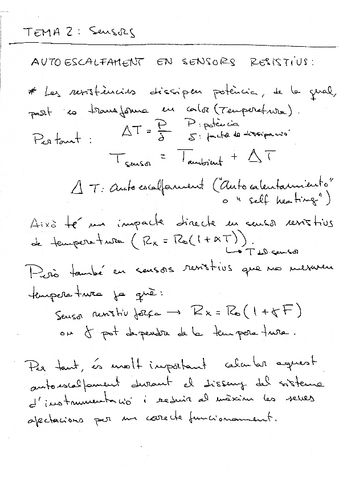 TEMA 2: Sensors
AUTOESCALFAMENT EN SENSORS RESISTIUS:
* Les resistències dissipen potència, de la qual,
part es transforma en calor (Temperatura).
Per tant: ΔT = P/δ P: potència
δ: factor de dissipació
T sensor = T ambient + ΔT
ΔT: Autoescalfament ("Autocalentamiento"
o "self heating")
Això té un impacte directe en sensors resistius
de temperatura (Rx = Ro(1+αT)).
→ T del sensor
Però també en sensors resistius que no mesuren
temperatura ja què:
Sensor resistiu força → Rx = Ro(1+γF)
on γ pot dependre de la temperatura.
Per tant, és molt important calcular aquest
autoescalfament durant el disseny del sistema
d'instrumentació i reduir al màxim les seves
afectacions per un correcte funcionament.